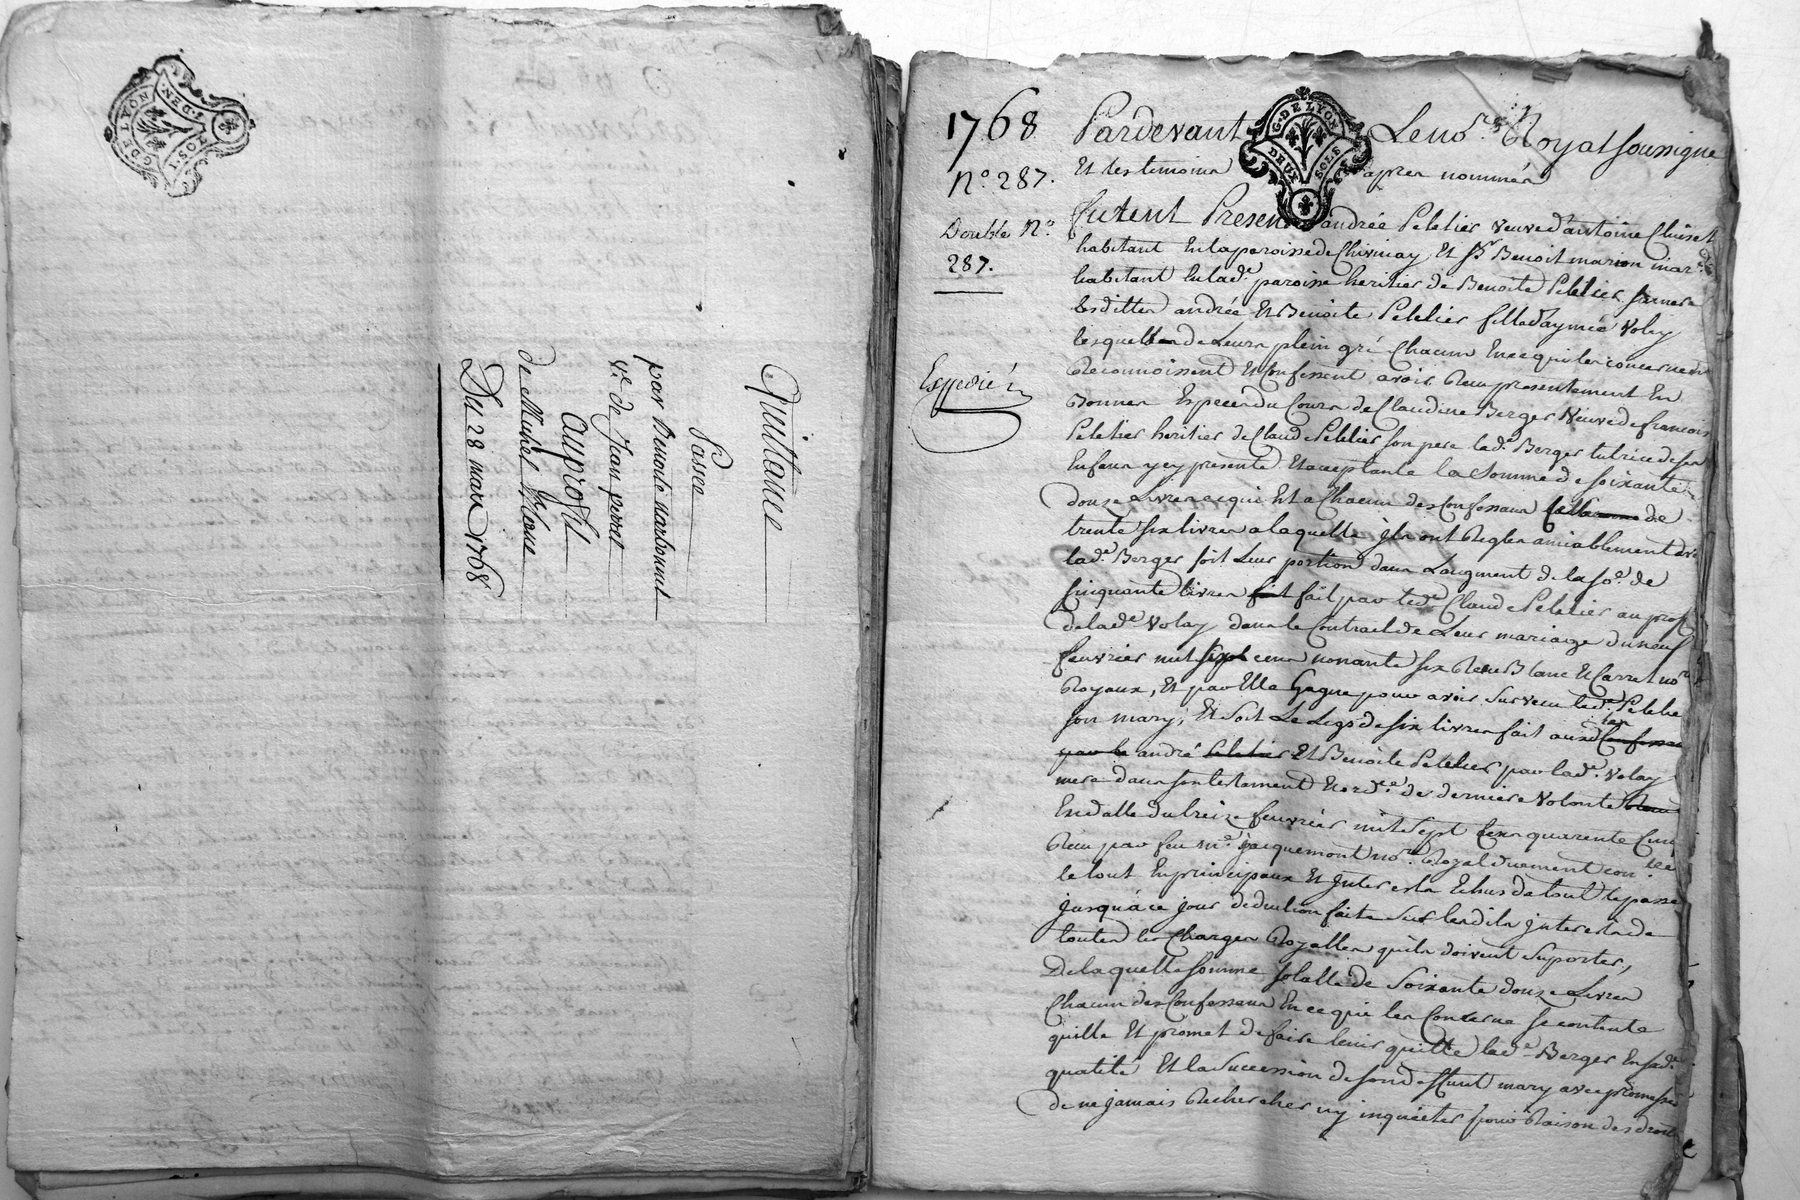 G. DE LYON
DEUX SOLS
Quittance
Passée
par Benoite Narbonnet
ve de Jean perret
auproffit
de Michel Blanc
Du 28 mars 1768
1768
N.º 287.
Double N.º
287.
Expedié
G. DE LYON
DEUX SOLS
Pardevant Le nore. Royal soussigné
Et les temoins apres nommés
furent Presens andrée Peletier veuve d'antoine
habitant En la paroisse de Chivinay Et sr. Benoit marion mar.d
habitant En lade. paroisse heritier de Benoite Peletier sa mere
lesdittes andrée Et Benoite Peletier filles d'aymée Volay
lesquelles de Leurs plein gré Chacun En ce qui les concerne
Reconnoissent Et Confessent avoir Reçu presentement En
Bonnes Especes du Cours de Claudine Berger Veuve de francois
Peletier heritier de Claude Peletier son pere lade. Berger tutrice de ses
Enfans y cy presente Et acceptante la Somme de soixante
douze Livres ce qui Est a Chacun des Confessans de
trente six livres a laquelle ils ont Reglés amiablement avec
lade. Berger soit Leur portion dans L'augment de la so.e de
cinquante livres fait par led. Claude Peletier au proft
de lade. Volay dans le Contrat de Leur mariage du neuf
fevrier mil sept cens nonante six Reçu Blanc Et Carret nores
Royaux, Et par Elle Gagné pour avoir Survecu led. Peletier
son mary, Et soit Le Legs de six livres fait auxd.
andré Et Benoite Peletier par lade. Volay
mere dans son testament Et ord.ce de derniere Volonté
En datte du treize fevrier mil Sept Cens quarente Cinq
Reçu par feu me. jacquemont nore. Royal duement con.llé
le tout En principaux Et Interests Echus de tout le passé
Jusqu'à ce jour deduction faite Sur lesdits Interests de
toutes les Charges Royalles qu'ils doivent Suporter,
De laquelle somme totalle de Soixante douze Livres
Chacun des Confessans En ce qui les Concerne se contente
quitte Et promet de faire tenir quitte lade. Berger En sad.e
qualité Et la Succession de son deffunt mary avec promesse
de ne jamais Rechercher ny inquieter pour Raison des droits